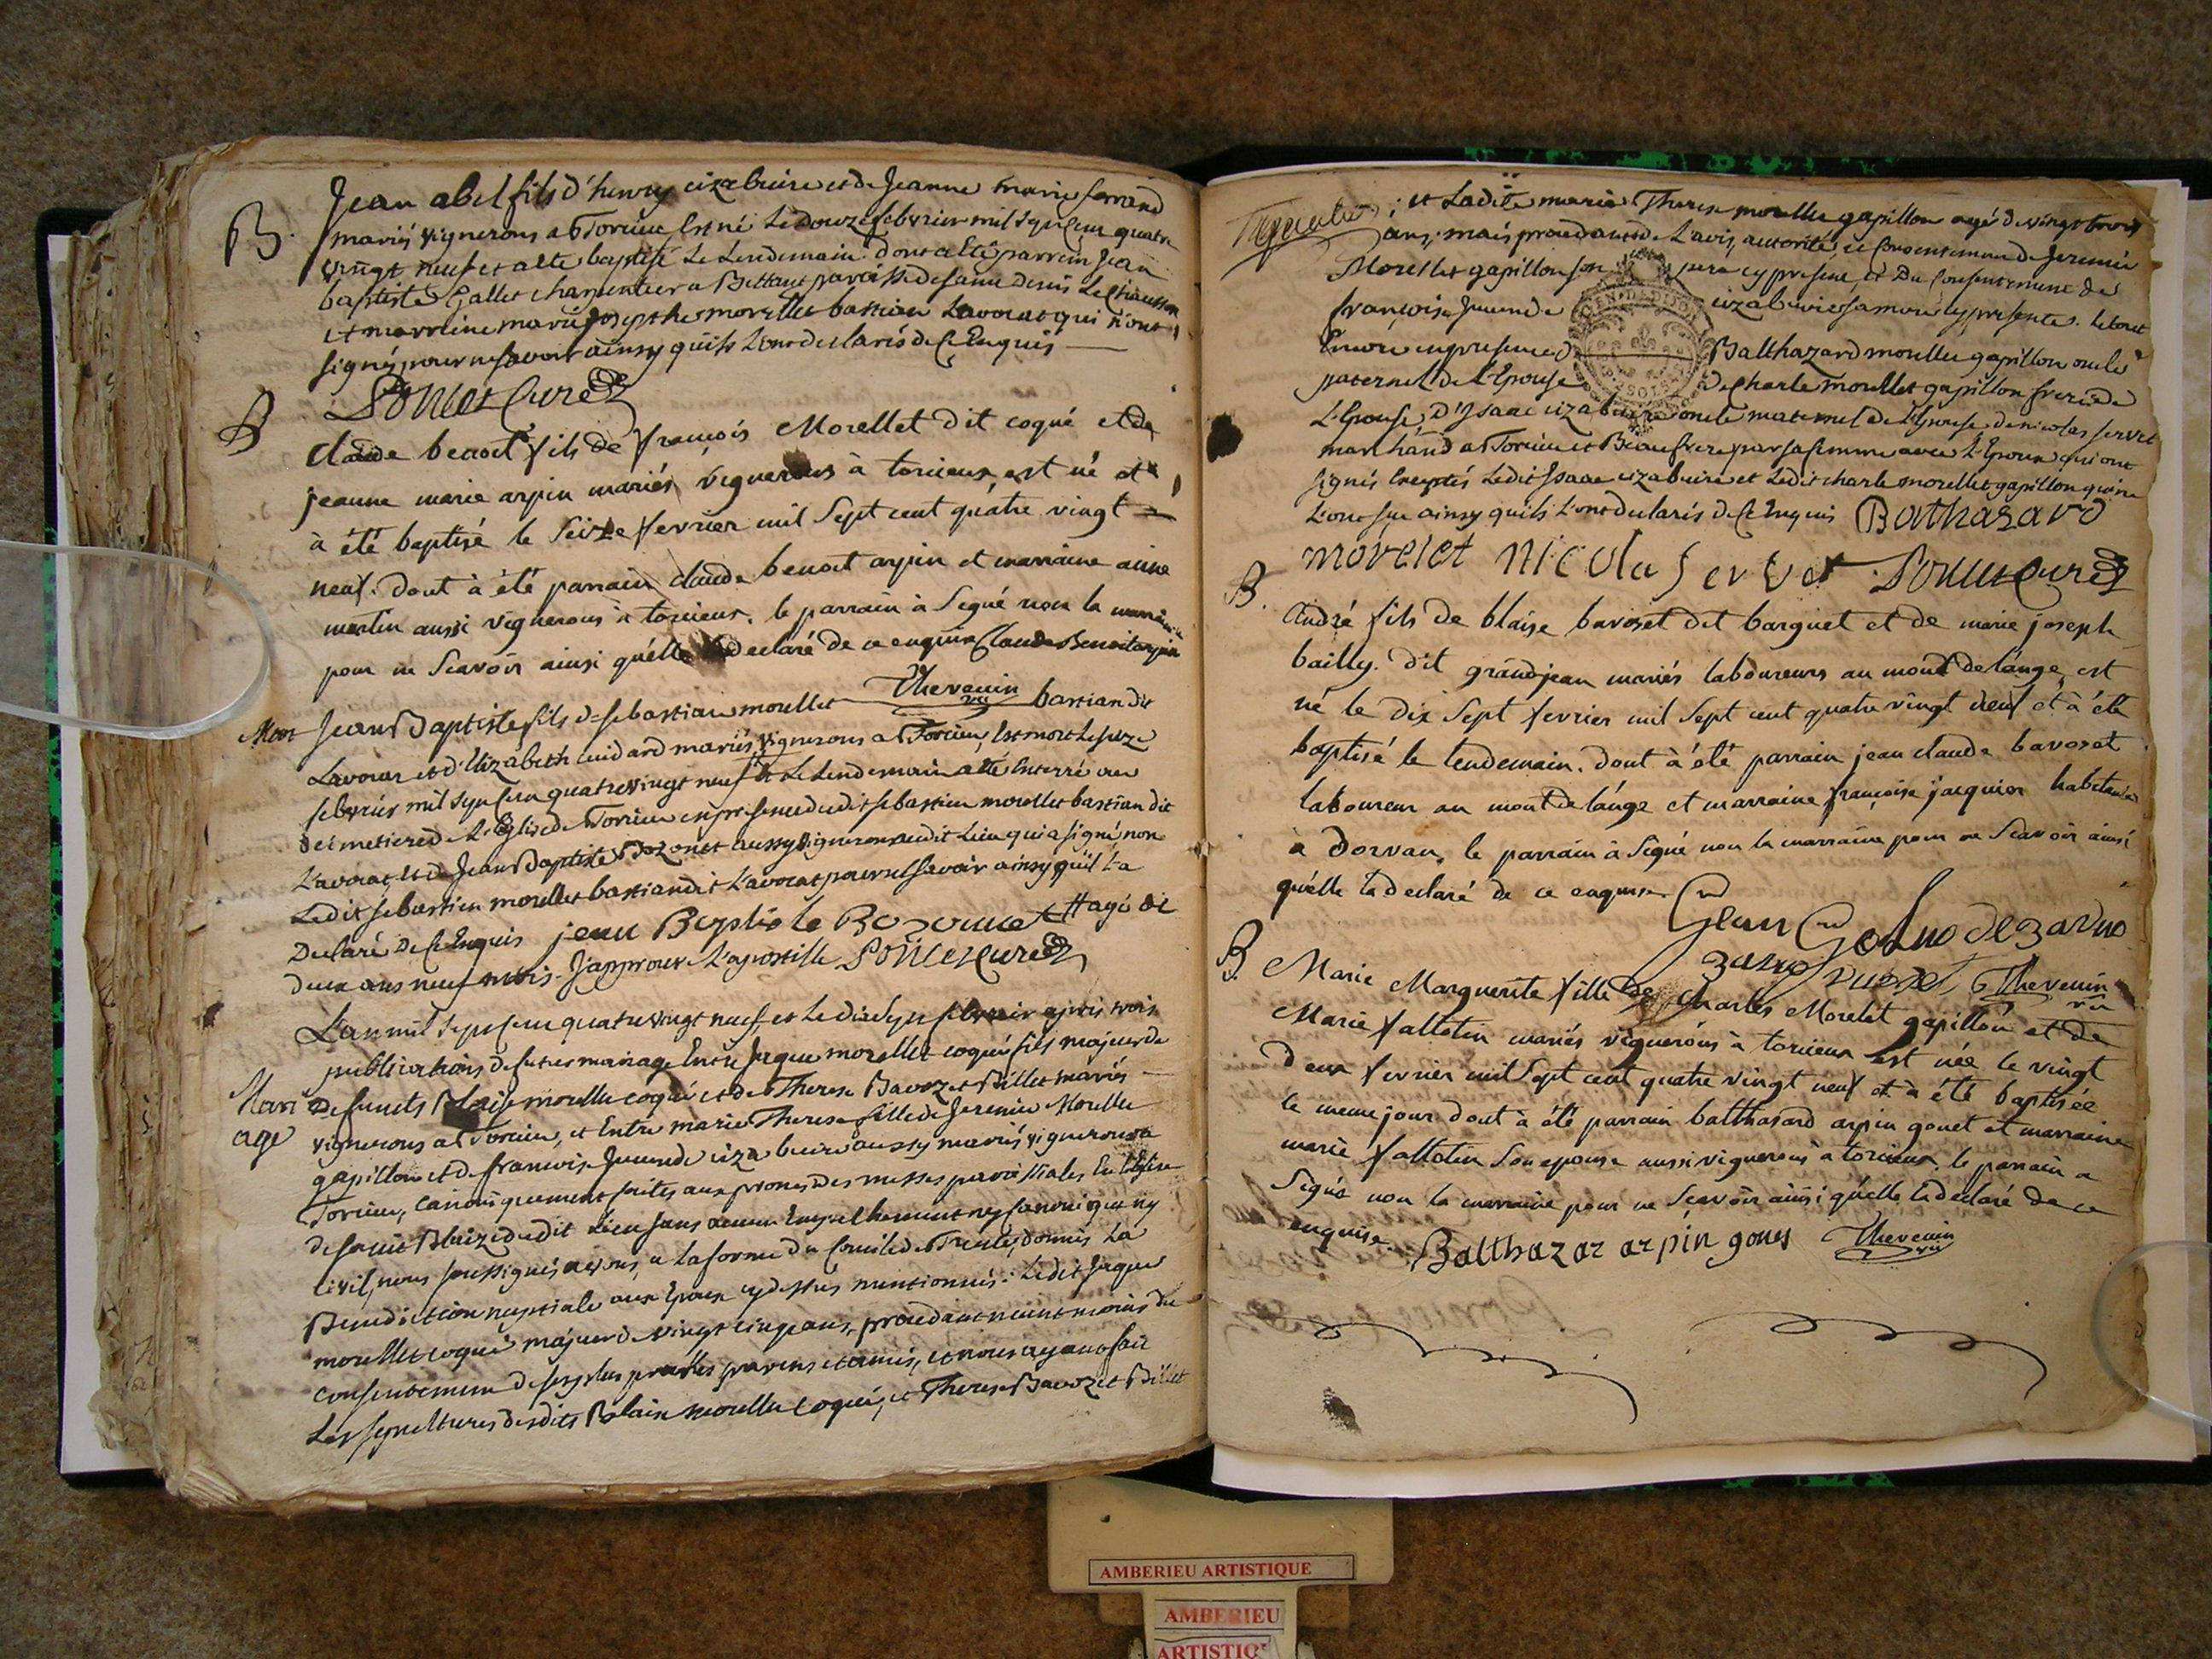 B.
Jean abel fils d'henry cizabuire et de Jeanne marie ferrand
mariés vignerons a Torcieu Est né Le douze febvrier mil sept Cent quatre
vingt neuf et a esté baptisé Le Lendemain. dont a esté parrein Jean
baptiste Gallet charpentier a Bettant paroisse de saint denis Le Chausson
et marreine marie Josephe morellet bastian Lavocat qui n'ont
signé pour ne savoir ainsy quils L'ont declarés de Ce Enquis
Poncet Curé
B
claude benoit fils de françois Morellet dit coqué et de
jeanne marie arpin mariés vignerons à torcieux est né et
à été baptisé le Seize fevrier mil Sept cent quatre vingt
neuf. dont à été parrain claude benoit arpin et marraine aine
martin aussi vignerons à torcieux. le parrain à Signé non la marraine
pour ne Scavoir ainsi qu'elle declaré de ce enquise Claude Benoit arpin
Thevenin vic
Mort
Jean Baptiste fils de sebastian morellet bastian dit
Lavocat et d'Elizabeth Cuidard mariés vignerons a Torcieu, Est mort Le seize
febvrier mil sept Cent quatre vingt neuf et Le Lendemain a esté Enterré au
Cimetiere de L'Eglise de Torcieu en presence dudit sebastien morellet bastian dit
L'avocat, et de Jean Baptiste Bozonet aussy vigneron audit Lieu qui a signé, non
Ledit sebastien morellet bastian dit L'avocat pour ne savoir ainsy qu'il L'a
Declaré De Ce Enquis jean Baptiste Bozonnet # agé de
deux ans neuf mois. J'approuve L'apostille Poncet Curé
L'an mil sept Cent quatre vingt neuf, et Le dix sept febvrier après trois
publications de futur mariage Entre Jaque morellet coqué fils majeur de
Mari
age
Defunts Blaise morellet coqué et de Therese Bavozet Billet mariés
vignerons a Torcieu, et Entre marie Therese fille de Jeremie Morellet
gapillon et de francoise Jeune de cizabuire aussy mariés vignerons a
Torcieu, canoniquement faites aux prones des messes paroissiales En L'Eglise
de saint Blaize dudit Lieu sans aucun Empechement ny canonique ny
civil, nous soussignés avons, a La forme du Concile de Trente, donnés La
Benediction nuptiale aux Epoux cy dessus mentionnés. Ledit Jaques
morellet coqué majeur de vingt cinq ans, procedant neantmoins du
consentement de ses plus proches parens et amis, et nous ayant fait
Les sepultures desdits Blaise morellet coqué, et Therese Bavozet Billet
; et Ladite marie Therese morellet gapillon agé de vingt trois
ans, mais procedant de L'avis, autorité, et Consentement de Jeremie
Morellet gapillon son pere cy present, et Du Consentement de
françoise Jeune de cizabuire sa mere cy presente. Le tout
Encore en presence de Balthazard morellet gapillon oncle
paternel de L'Epouse de Charle morellet gapillon frere de
L'Epouse, d'Isaac cizabuire oncle maternel de L'Epouse, de nicolas servet
marchand a Torcieu et Beaufrere par sa femme avec L'Epoux qui ont
signés Exceptés Ledit Isaac cizabuire et Ledit charle morellet gapillon qui ne
L'ont sçu ainsy quils L'ont declarés de Ce Enquis Bathazard
morelet nicolas servet Poncet Curé
B.
André fils de blaise bavoset dit barquet et de marie joseph
bailly. dit grandjean mariés laboureurs au mont de lânge, est
né le dix Sept fevrier mil Sept cent quatre vingt neuf et à été
baptisé le lendemain. dont à été parrain jean claude bavoset
laboureur au mont de lânge et marraine françoise jacquier habitante
à dorvan, le parrain à Signé non la marraine pour ne Scavoir ainsi
qu'elle la declaré de ce enquise
Thevenin vic
B.
Marie Marguerite fille de Charles Morelet gapillon et de
Marie fallotin mariés vignerons à torcieux est née le vingt
deux fevrier mil Sept cent quatre vingt neuf et à été baptisée
le meme jour dont à été parrain balthasard arpin gonet et marraine
marie fallotin Son epouse aussi vignerons a torcieux. le parrain a
Signé non la marraine pour ne Sçavoir ainsi qu'elle la declaré de ce
enquise. Balthazar arpin gones Thevenin vic
AMBERIEU ARTISTIQUE
AMBERIEU
ARTISTIQ